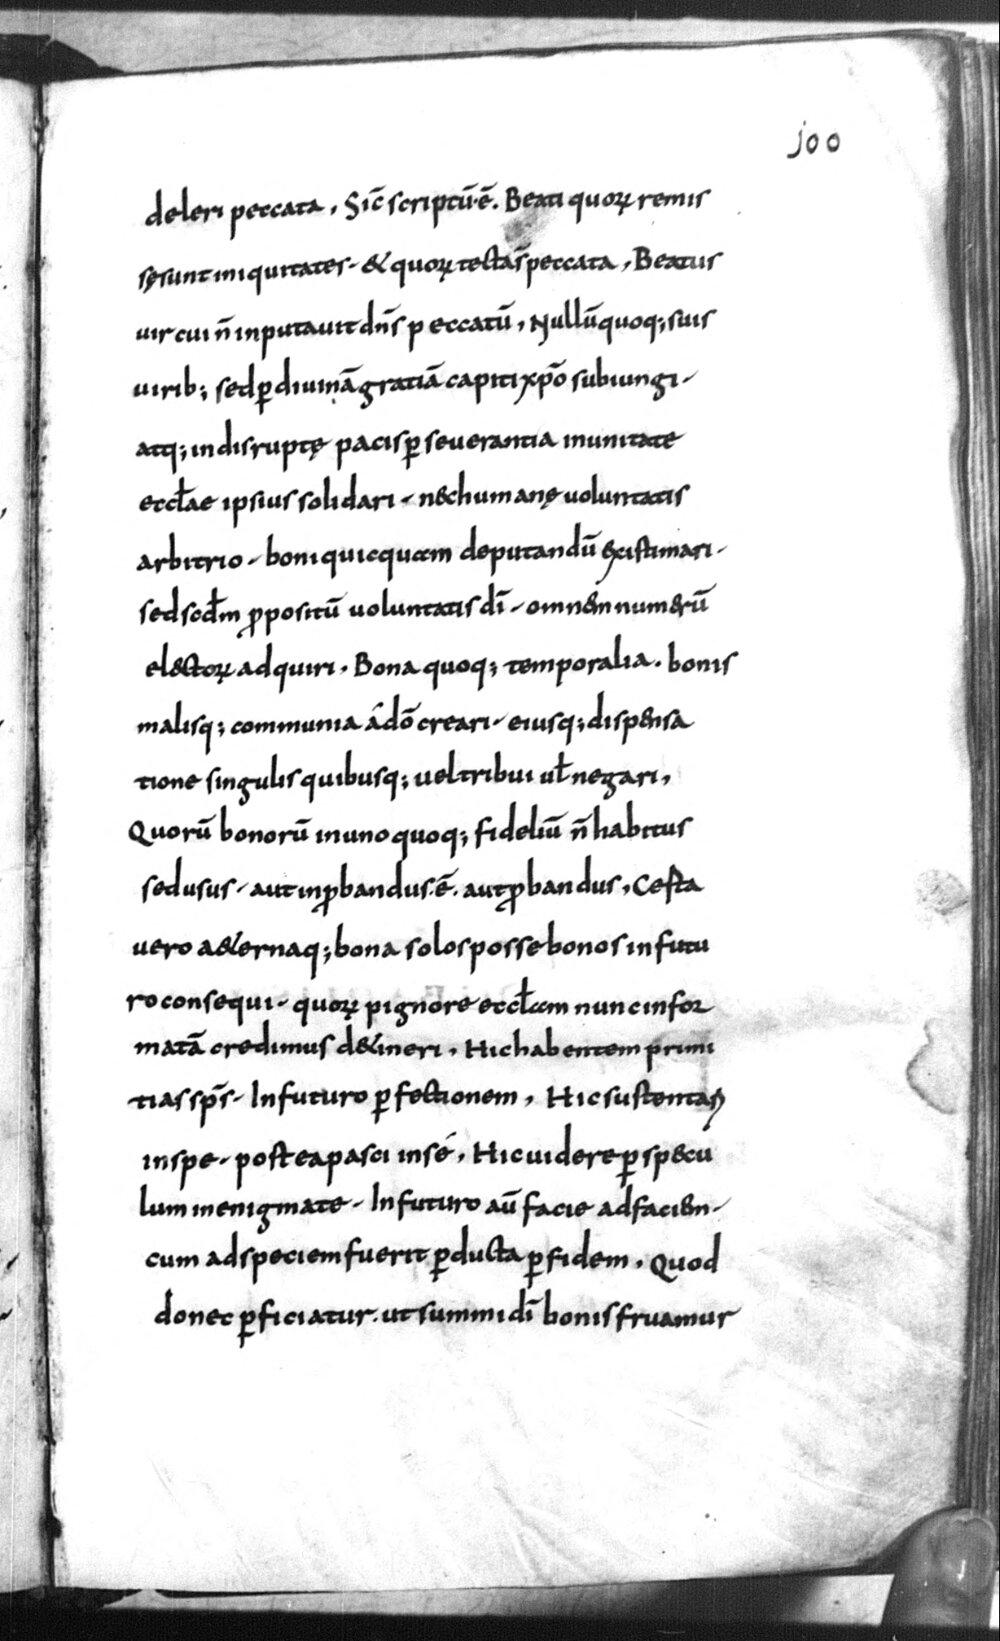 j00
deleri peccata, Sic̄ scriptū·ē. Beati quoꝝ remis
sęsunt iniquitates· & quoꝝ tectas̄ peccata, Beatus
uir cui n̄ inputauit dn̄s peccatū, Nullū quoq; suis
uirib; sed ꝑ diuinā gratiā capiti xp̄o subiungi·
atq; in disruptę pacis ꝑseuerantia in unitate
eccłae ipsius solidari· n&chumanę uoluntatis
arbitrio· boni quicquam deputandū &xistimari·
sed scdm̄ ꝓpositū uoluntatis dī· omn&m num&rū
el&ctoꝝ adquiri· Bona quoq; temporalia· bonis
malisq; communia á dō creari· eiusq; dispensa
tione singulis quibusq; uel tribui uł negari,
Quorū bonorū in uno quoq; fideliū n̄ habitus
sed usus· aut inꝓbandus·ē· aut ꝓbandus, Cęsta
uero a&ernaq; bona solos posse bonos in futu
ro consequi· quoꝝ pignore eccłam nunc infor
matā credimus d&ineri, Hic habentem primi
tias sp̄s· In futuro ꝑfectionem, Hic sustentari
in spe· postea pasci in sé, Hic uidere ꝑ sp&cu
lum in enigmate· In futuro aū facie ad faciem·
cum ad speciem fuerit ꝑducta ꝑ fidem, Quod
donec ꝑficiatur· ut summi dī bonis fruamur